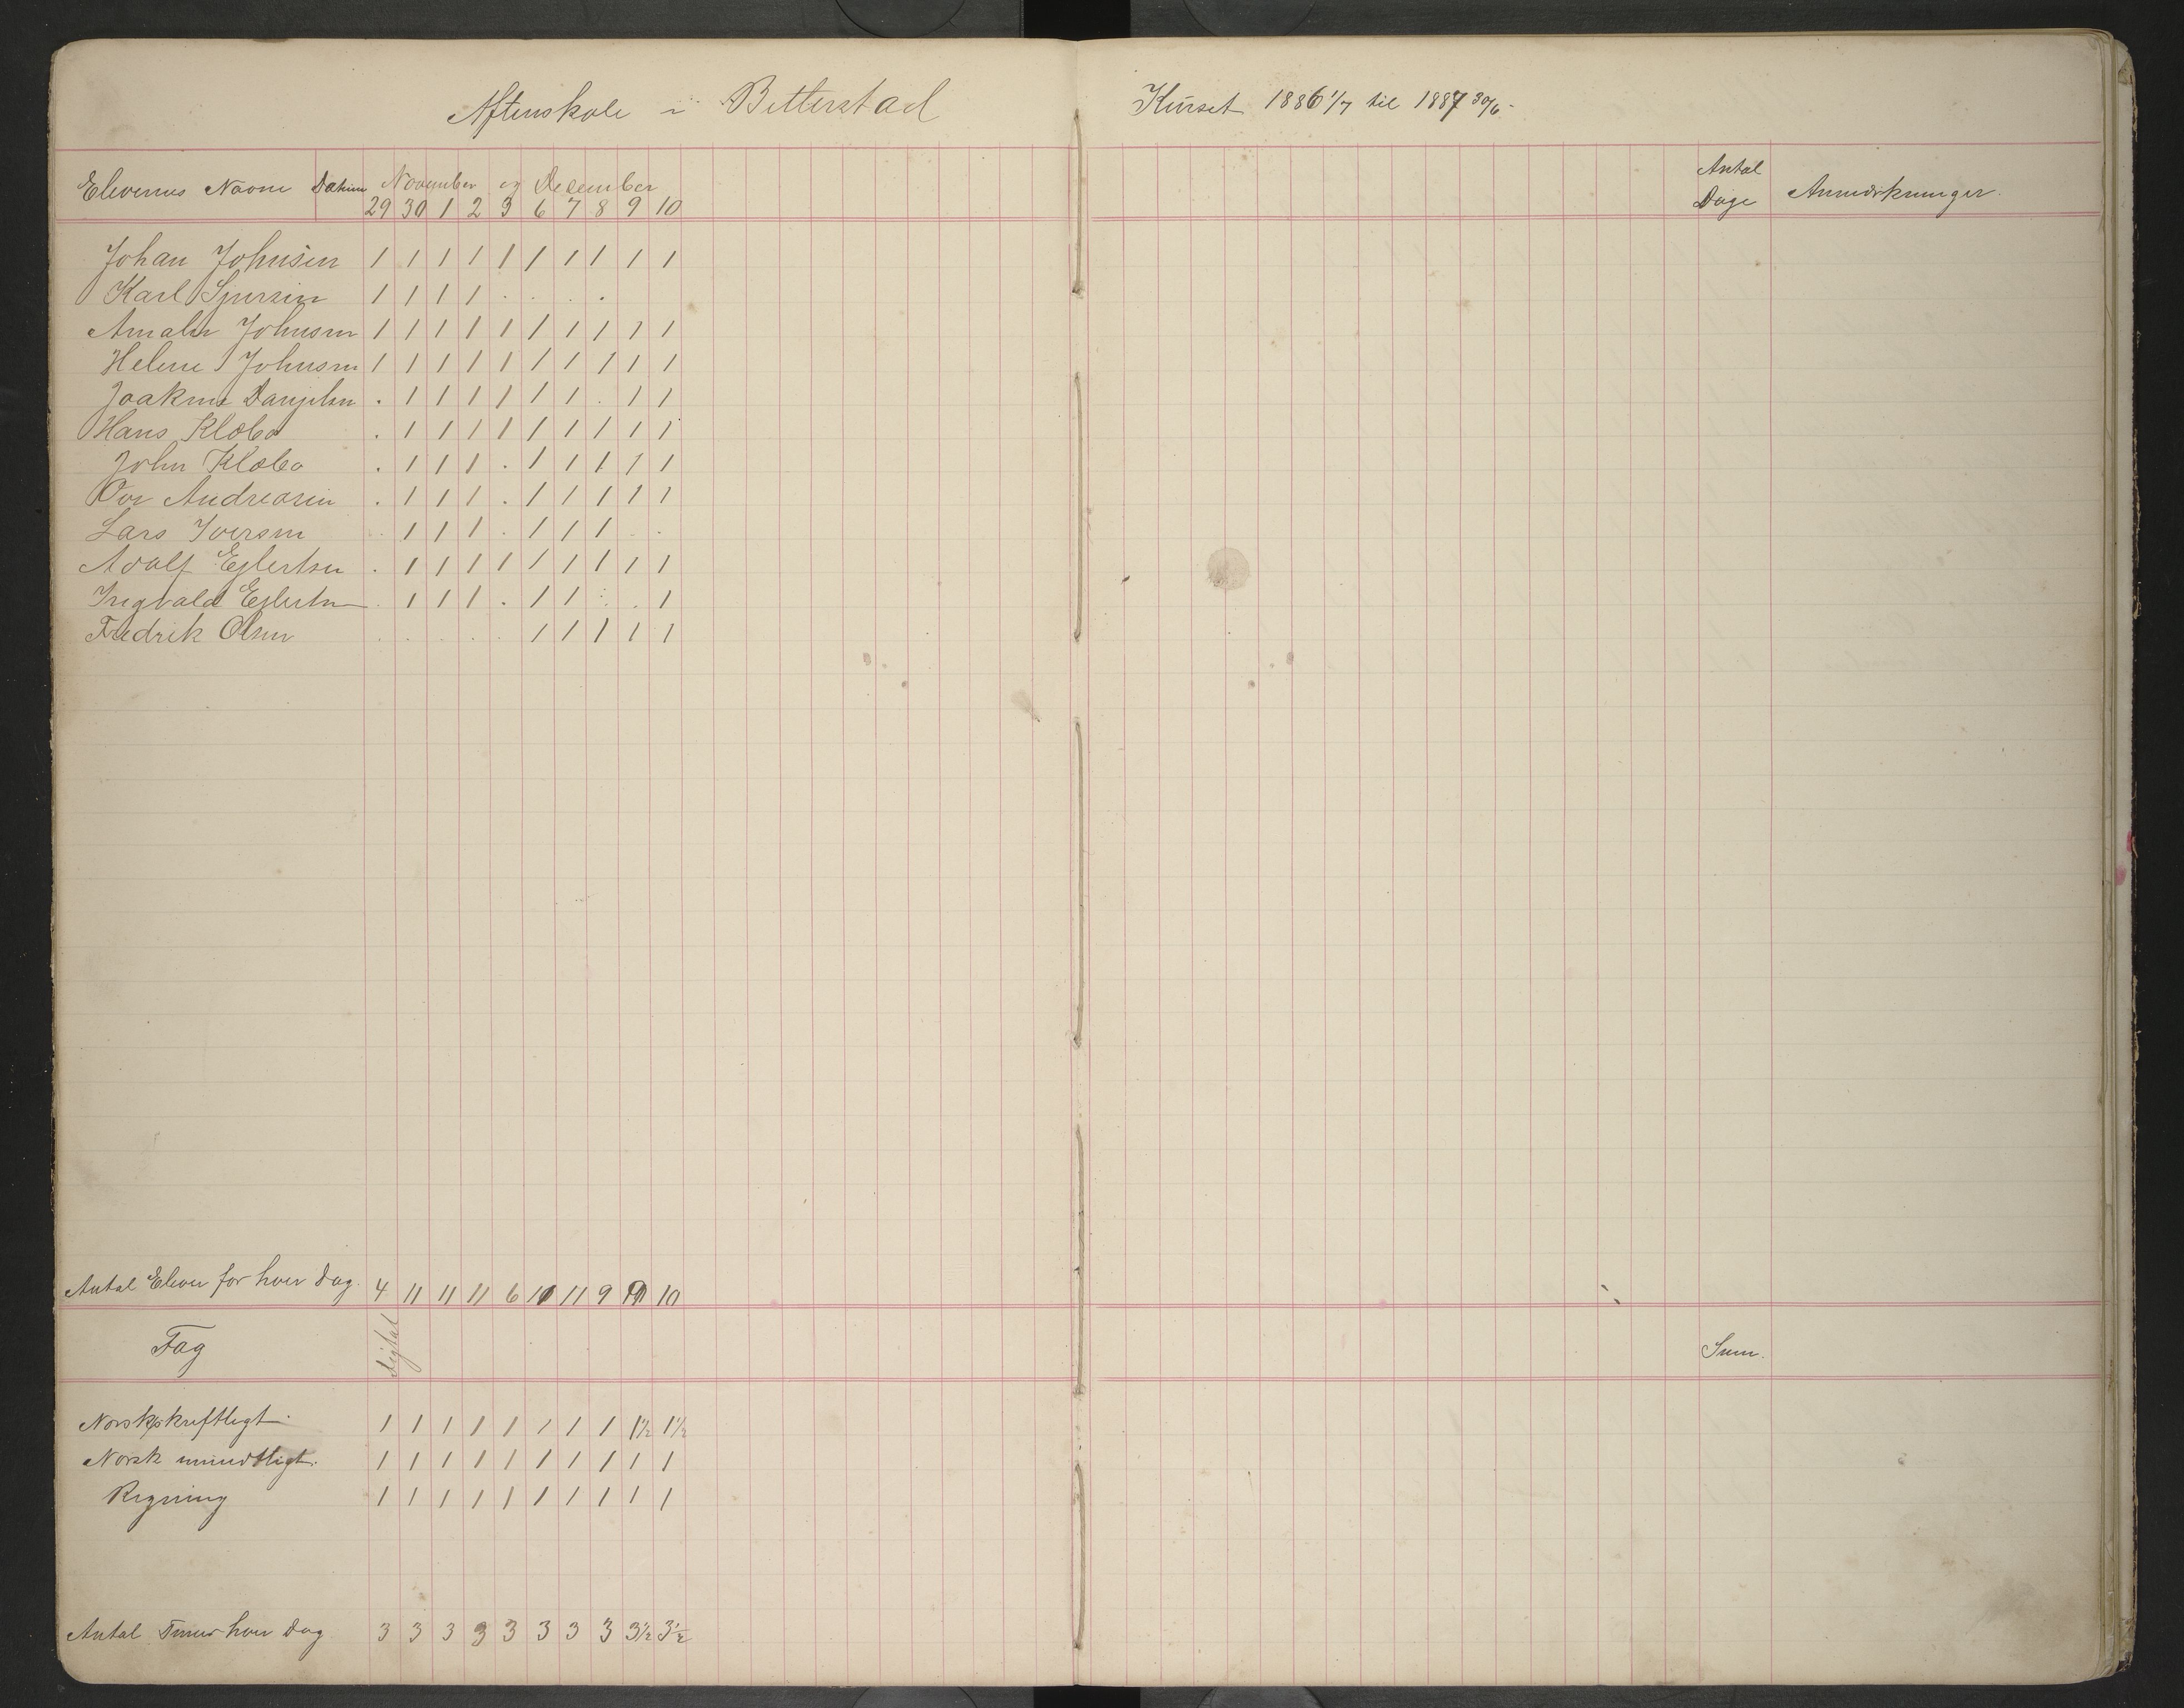 Aftenskole i Bitterstad
Kurset 1886 1/7 til 1887 30/6.
Elevernes Navne Datum November og December Antal
29 30 1 2 3 6 7 8 9 10 Dage Anmærkninger.
Johan Johnsen 1 1 1 1 1 1 1 1 1 1
Karl Sjursen 1 1 1 1 . . . .
Amalie Johnsen 1 1 1 1 1 1 1 1 1 1
Helene Johnsen 1 1 1 1 1 1 1 1 1 1
Joakim Danjelsen . 1 1 1 1 1 1 . 1 1
Hans Klæbo . 1 1 1 1 1 1 1 1 1
John Klæbo . 1 1 1 . 1 1 1 1 1
Andreasen . 1 1 1 . 1 1 1 1 1
Lars Iversen . 1 1 1 . 1 1 1 . .
Adolf Ejlertsen . 1 1 1 1 1 1 1 1 1
Ingvald Ejlertsen . 1 1 1 . 1 1 . . 1
Fredrik Olsen . . . . . 1 1 1 1 1
Antal Elever for hver Dag. 4 11 11 11 6 10 11 9 9 10
Fag Sum.
Norsk skriftligt. 1 1 1 1 1 1 1 1 1½ 1½
Norsk mundtligt. 1 1 1 1 1 1 1 1 1 1
Regning 1 1 1 1 1 1 1 1 1 1
Antal Timer hver Dag 3 3 3 3 3 3 3 3 3½ 3½